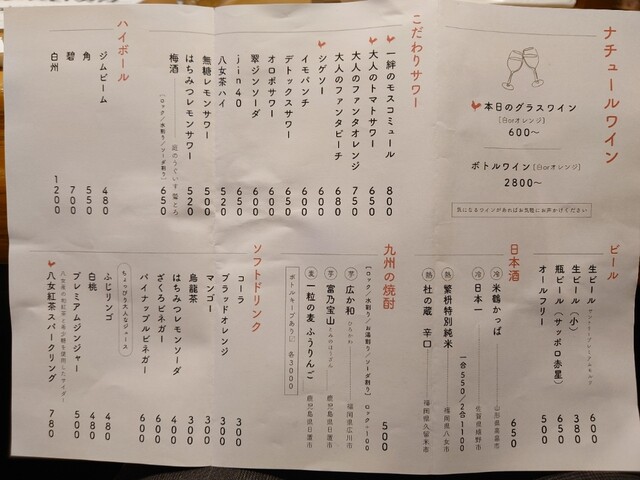 ナチュールワイン
本日のグラスワイン
[白orオレンジ]
600〜
ボトルワイン [白orオレンジ]
2800〜
気になるワインがあればお気軽にお声がけください
こだわりサワー
一絆のモスコミュール 800
大人のトマトサワー 650
大人のファンタオレンジ 750
大人のファンタピーチ 680
シゲソー 600
イモパンチ 600
デトックスサワー 650
オロポサワー 600
翠ジンソーダ 600
jin40 600
八女茶ハイ 520
無糖レモンサワー 500
はちみつレモンサワー 520
梅酒 庭のうぐいす 鶯とろ
[ロック/水割り/ソーダ割り] 650
ハイボール
ジムビーム 480
角 550
碧 700
白州 1200
ビール
生ビール 600
生ビール(小) 380
瓶ビール(サッポロ赤星) 650
オールフリー 500
日本酒
650
冷 米鶴かっぱ 山形県高畠市
冷 日本一 佐賀県嬉野市
一合550/2合1100
熱 繁枡特別純米 福岡県八女市
熱 杜の蔵 辛口 福岡県久留米市
九州の焼酎
500
[ロック/水割り/お湯割り/ソーダ割り] ロック+100
芋 広か和 ひろかわ 福岡県広川市
芋 富乃宝山 とみのほうざん 鹿児島県日置市
麦 一粒の麦 ふうりんご 鹿児島県日置市
ボトルキープあり 各3000
ソフトドリンク
コーラ 300
ブラッドオレンジ 300
マンゴー 300
烏龍茶 300
はちみつレモンソーダ 400
ざくろビネガー 600
パイナップルビネガー 600
ちょっぴり大人なジュース
ふじリンゴ 480
白桃 480
プレミアムジンジャー 500
八女紅茶スパークリング 780